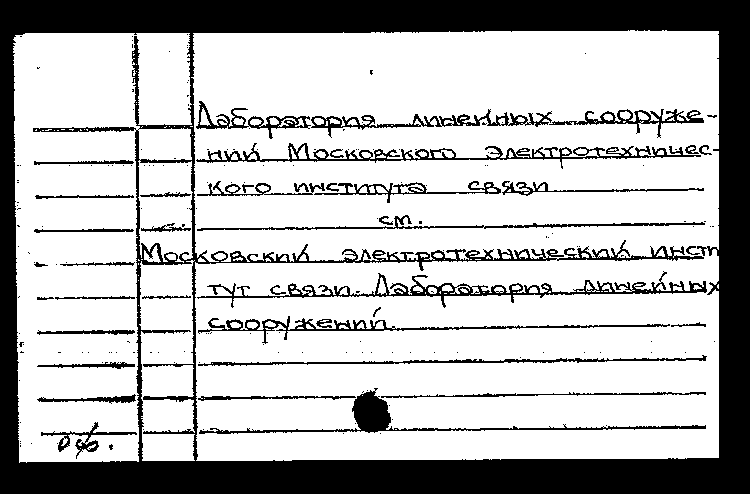 Лаборатория линейных сооруже-
ний Московского электротехничес-
кого института связи
см.
Московский электротехнический инсти
тут связи. Лаборатория линейных
сооружений.
оф.